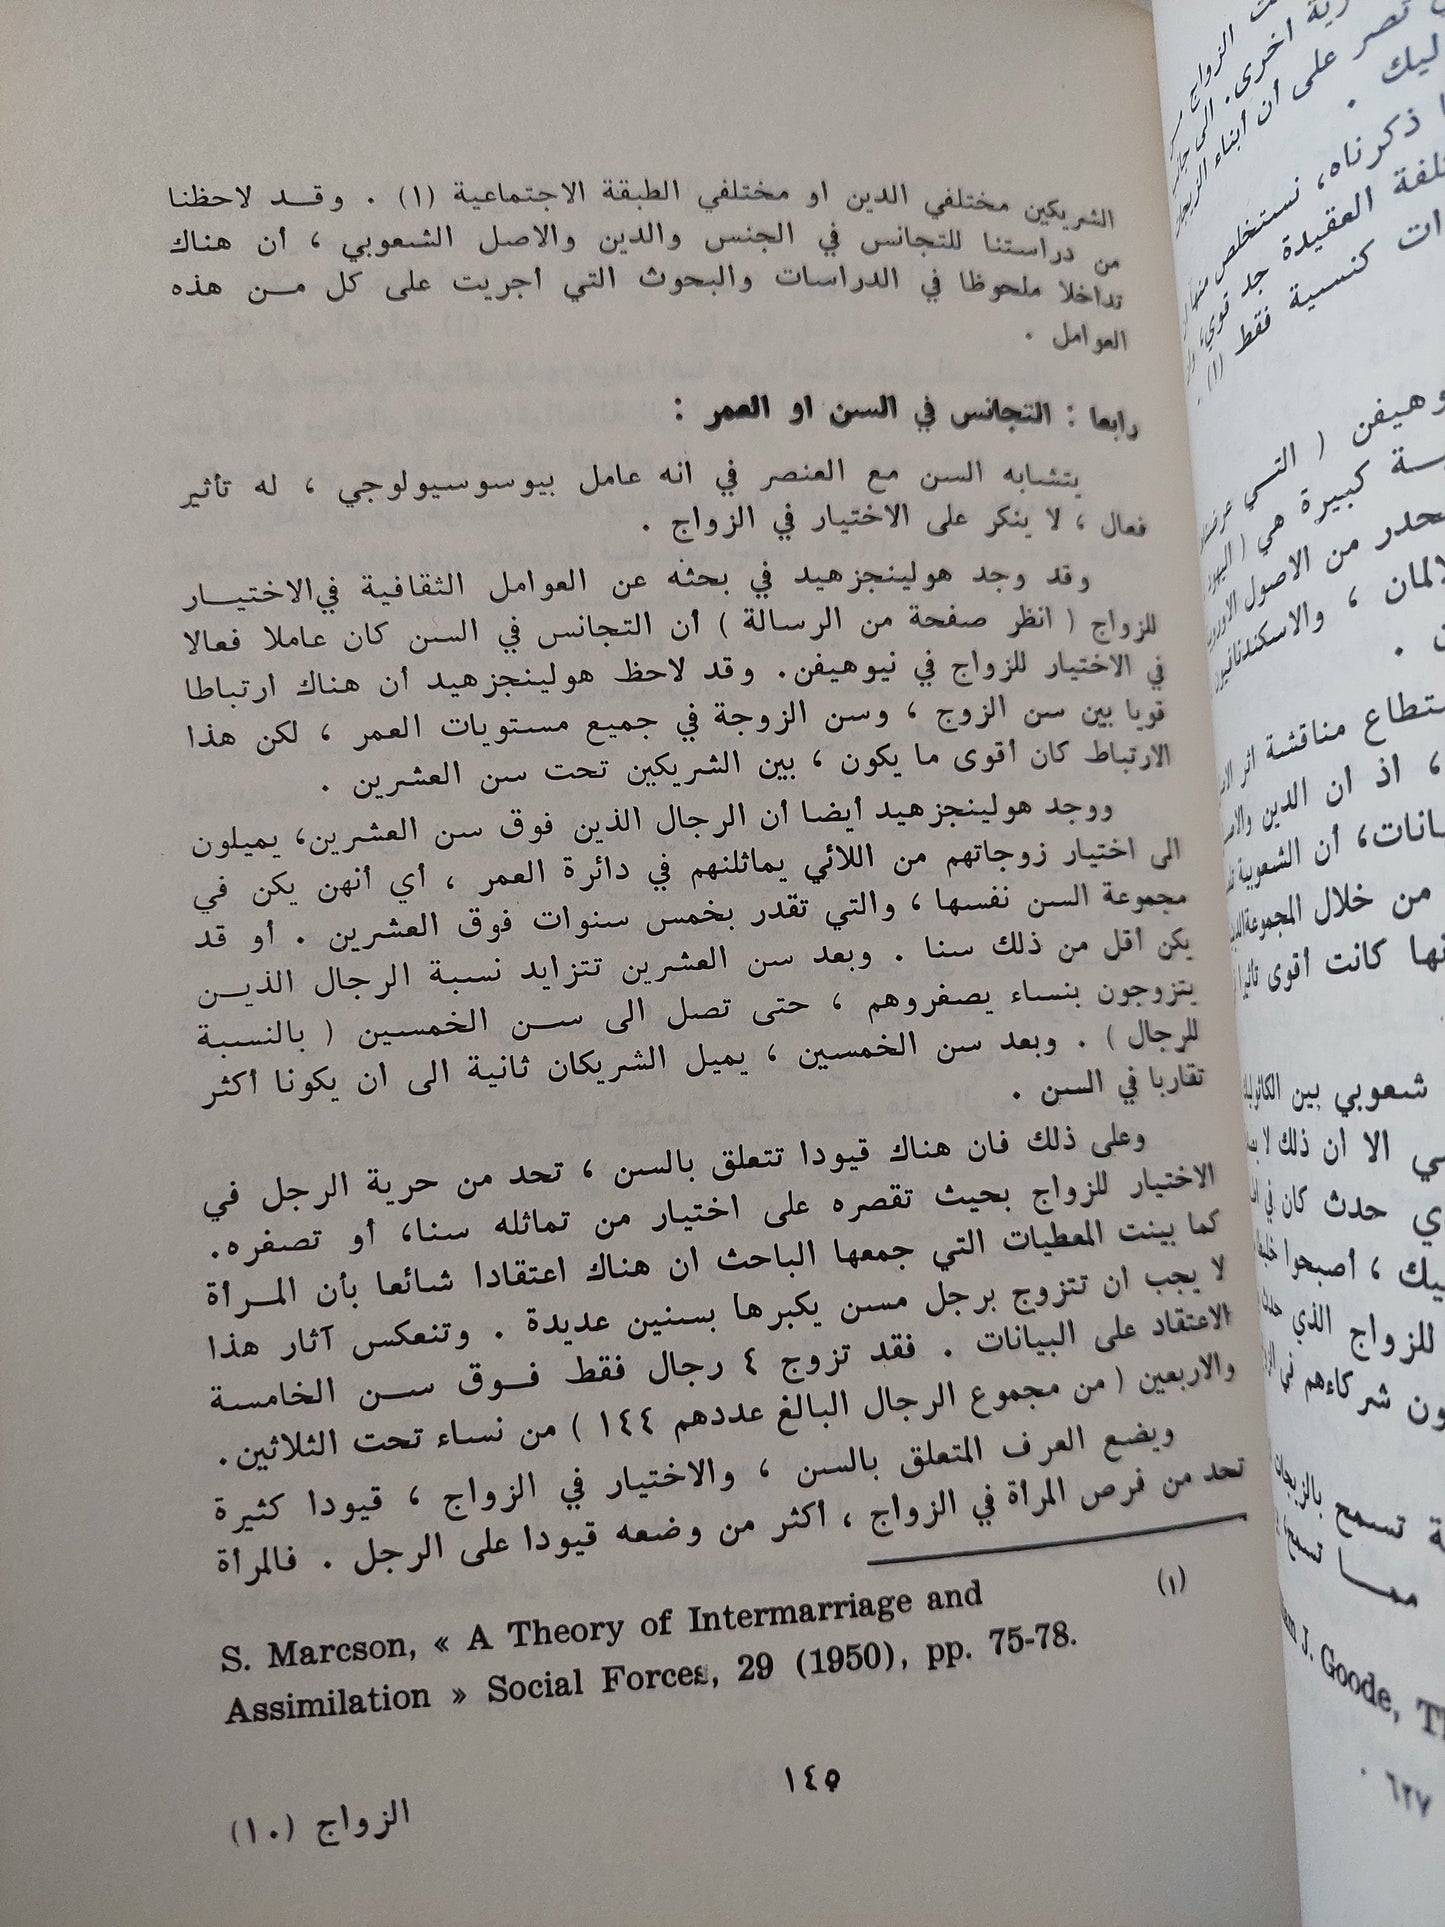 الشريكين مختلفي الدين او مختلفي الطبقة الاجتماعية (١) . وقـد لاحظنا
من دراستنا للتجانس في الجنس والدين والاصل الشعوبي ، أن هناك
تداخلا ملحوظا في الدراسات والبحوث التي أجريت على كل مـن هذه
العوامل .
رابعا : التجانس في السن او العمر :
يتشابه السن مع العنصر في انه عامل بيوسوسيولوجي ، له تأثير
فعال ، لا ينكر على الاختيار في الزواج .
وقد وجد هولينجزهيد في بحثه عن العوامل الثقافية في الاختيـار
للزواج ( انظر صفحة من الرسالة ) أن التجانس في السن كان عاملا فعالا
في الاختيار للزواج في نيوهيفن. وقد لاحظ هولينجزهيد أن هناك ارتباطا
قويا بين سن الزوج ، وسن الزوجة في جميع مستويات العمر ، لكن هذا
الارتباط كان أقوى ما يكون ، بين الشريكين تحت سن العشرين .
ووجد هولينجزهيد أيضا أن الرجال الذين فوق سن العشرين، يميلون
الى اختيار زوجاتهم من اللائي يماثلنهم في دائرة العمر ، أي أنهن يكن في
مجموعة السن نفسها ، والتي تقدر بخمس سنوات فوق العشرين . أو قد
يكن أقل من ذلك سنا . وبعد سن العشرين تتزايد نسبة الرجال الذيـن
يتزوجون بنساء يصغروهم ، حتى تصل الى سـن الخمسين ( بالنسبة
للرجال ) . وبعد سن الخمسين ، يميل الشريكان ثانية الى ان يكونا أكثر
تقاربا في السن .
وعلى ذلك فان هناك قيودا تتعلق بالسن ، تحد من حرية الرجل في
الاختيار للزواج بحيث تقصره على اختيار من تماثله سنا، أو تصغره.
كما بينت المعطيات التي جمعها الباحث ان هناك اعتقادا شائعا بأن المـرأة
لا يجب ان تتزوج برجل مسن يكبرها بسنين عديدة . وتنعكس آثار هذا
الاعتقاد على البيانات . فقد تزوج ٤ رجال فقط فـوق سـن الخامسة
والاربعين ( من مجموع الرجال البالغ عددهم ١٤٤ ) من نساء تحت الثلاثين.
ويضع العرف المتعلق بالسن ، والاختيار في الزواج ، قيودا كثيرة
تحد من فرص المرأة في الزواج ، أكثر من وضعه قيودا على الرجل . فالمرأة
(١)
S. Marcson, « A Theory of Intermarriage and
Assimilation » Social Forces, 29 (1950), pp. 75-78.
١٤٥
الزواج (١٠)
الزواج
اخرى. الى
تصر على أن أبناء
ليك .
ذكرناه، نستخلص
العقيدة جد قوي
كنسية فقط (١) .
وهيفن ( التـي
كبيرة هي (
من الاصول
، والاسكندنافيون
مناقشة اثر
، اذ ان الدين
، أن الشعوبية
من خلال المجموعة
كانت أقوى تاثيرا
شعوبي بين
الا ان ذلك لا
حدث كان في
، أصبحوا
للزواج الذي
شركاءهم في
تسمح بالزيجات
ممـا تسمح
J. Goode,
٦٢٧ .